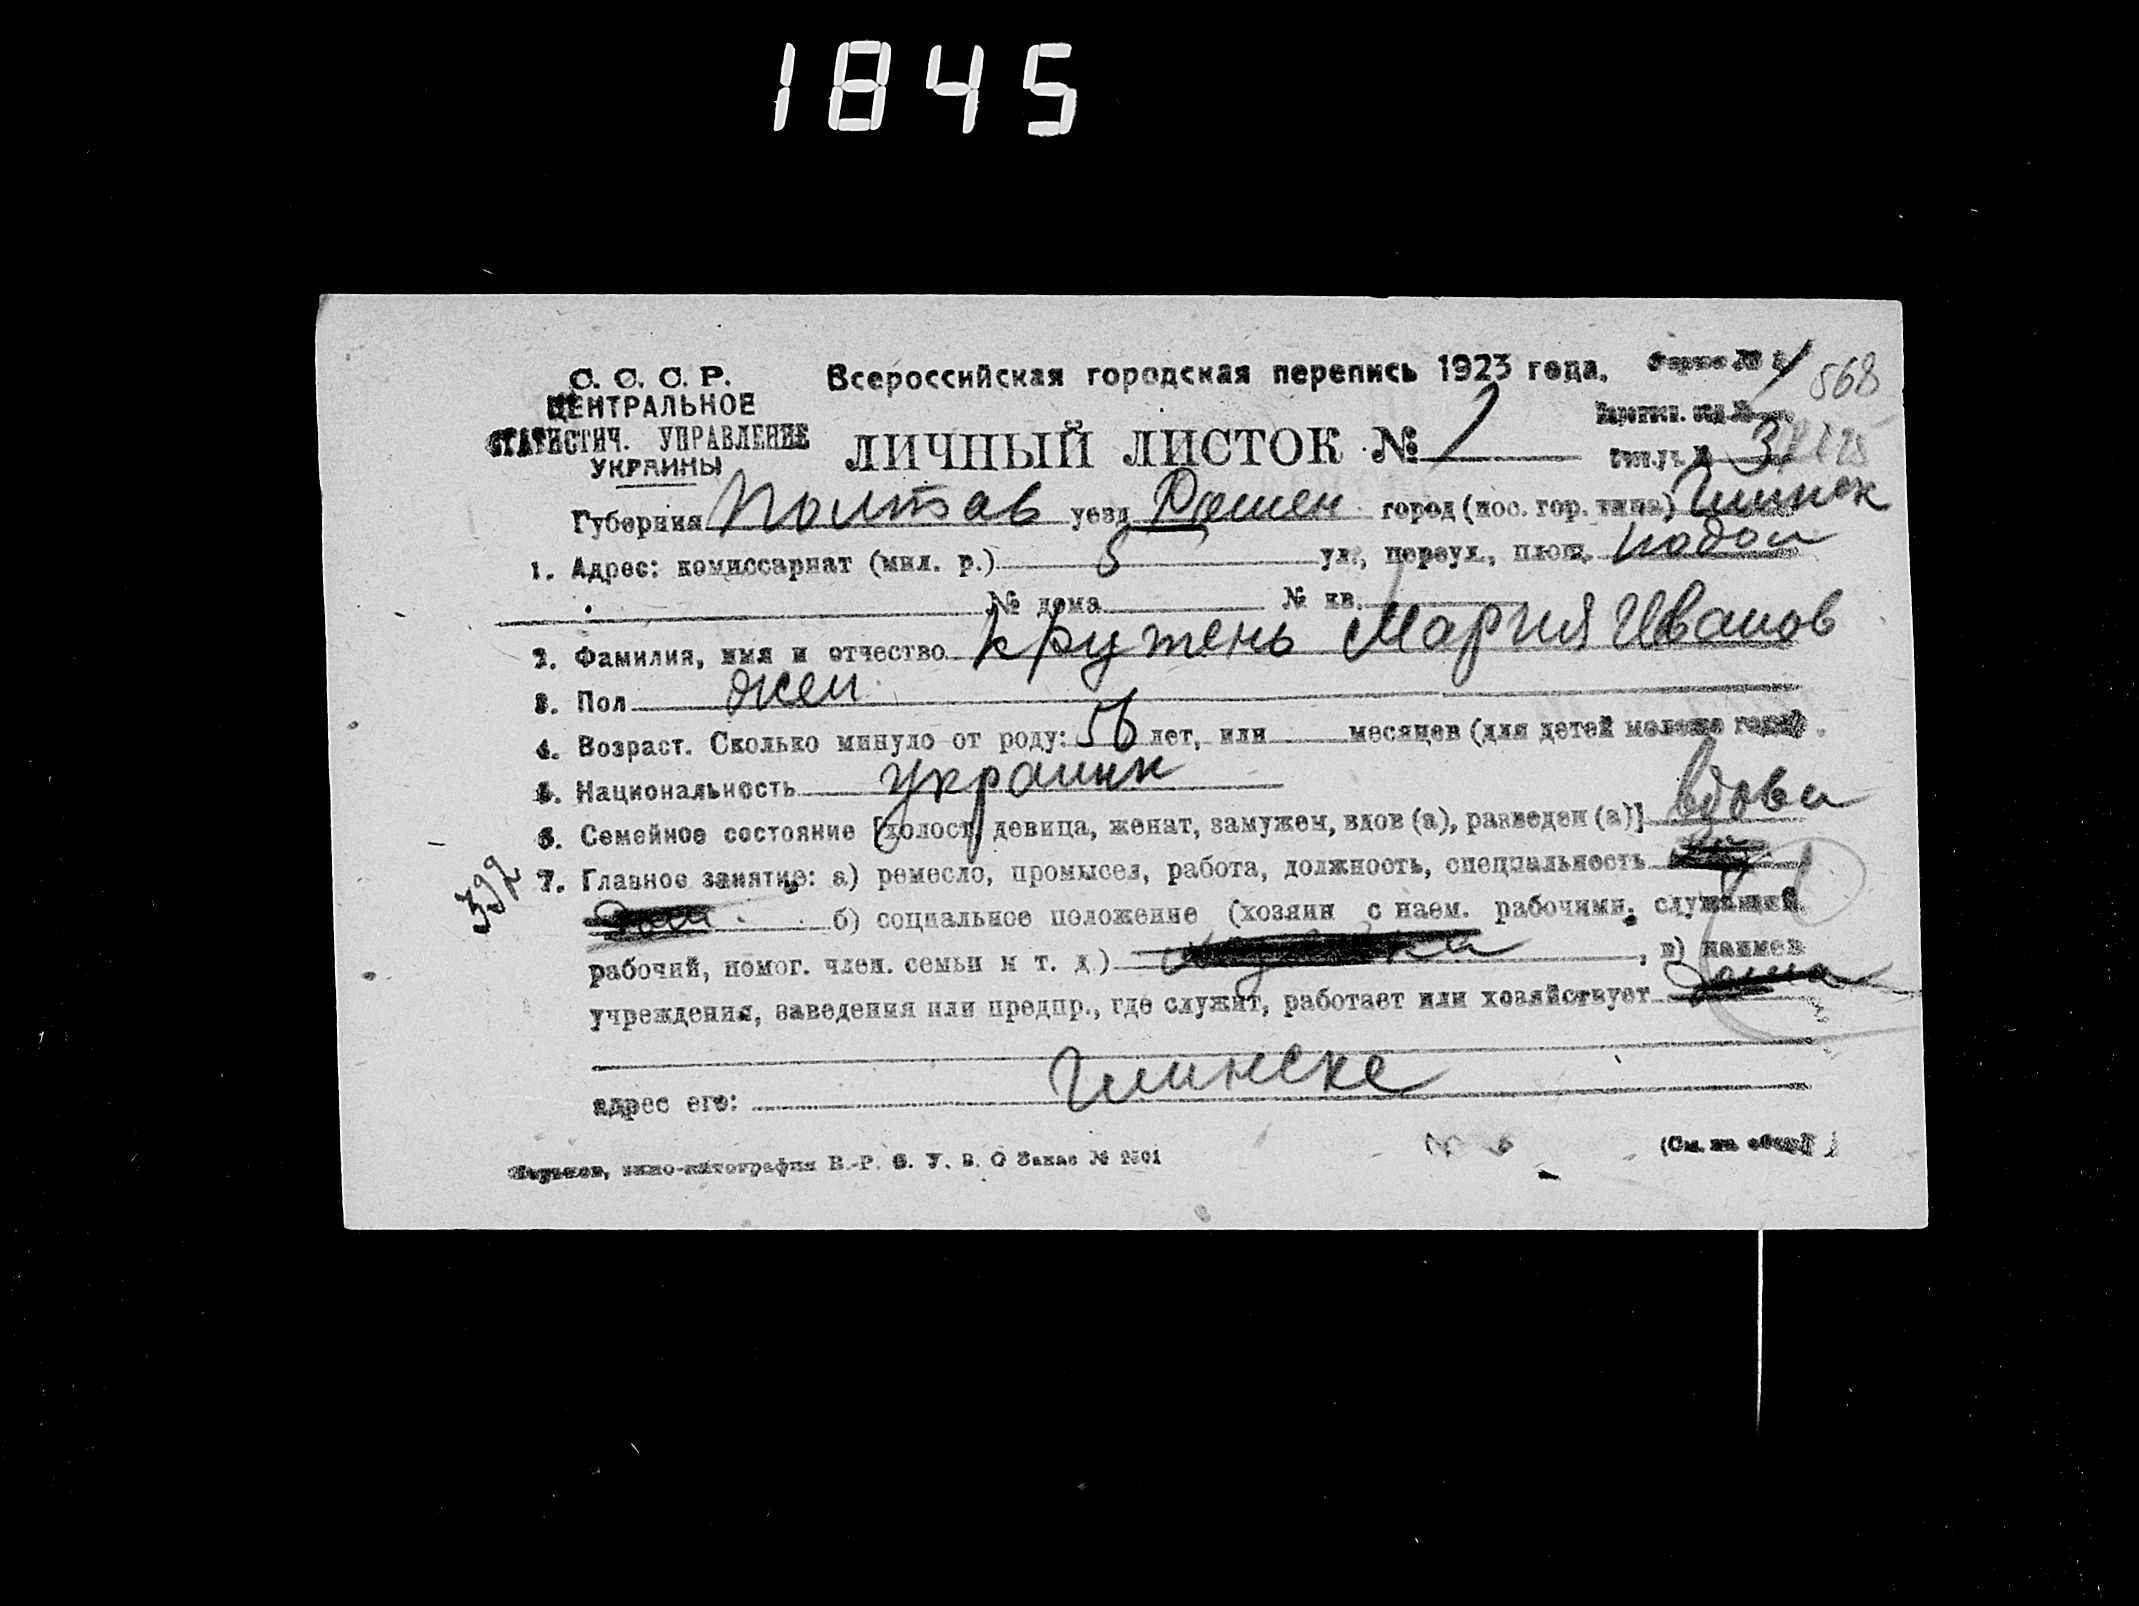 1845
С. С. С. Р.
ЦЕНТРАЛЬНОЕ
СТАТИСТИЧ. УПРАВЛЕНИЕ
УКРАИНЫ
Всероссийская городская перепись 1923 года.
Форма № 568
ЛИЧНЫЙ ЛИСТОК № 1
Переписн. отд. №
Счетн. уч. № 3
Губерния Полтав уезд город (пос. гор. типа) Глинск
1. Адрес: комиссариат (мил. р.) 5 ул., переул., площ. Подол
№ дома № кв.
2. Фамилия, имя и отчество Крутень Мария Иванов
3. Пол жен
4. Возраст. Сколько минуло от роду: 56 лет, или месяцев (для детей моложе года).
5. Национальность украинк
6. Семейное состояние [холост, девица, женат, замужем, вдов (а), разведен (а)] вдова
397
7. Главное занятие: а) ремесло, промысел, работа, должность, специальность
б) социальное положение (хозяин с наем. рабочими, служащий,
рабочий, помог. член. семьи и т. д.) , в) наимен
учреждения, заведения или предпр., где служит, работает или хозяйствует дома
адрес его: Глинске
(См. на обор.)